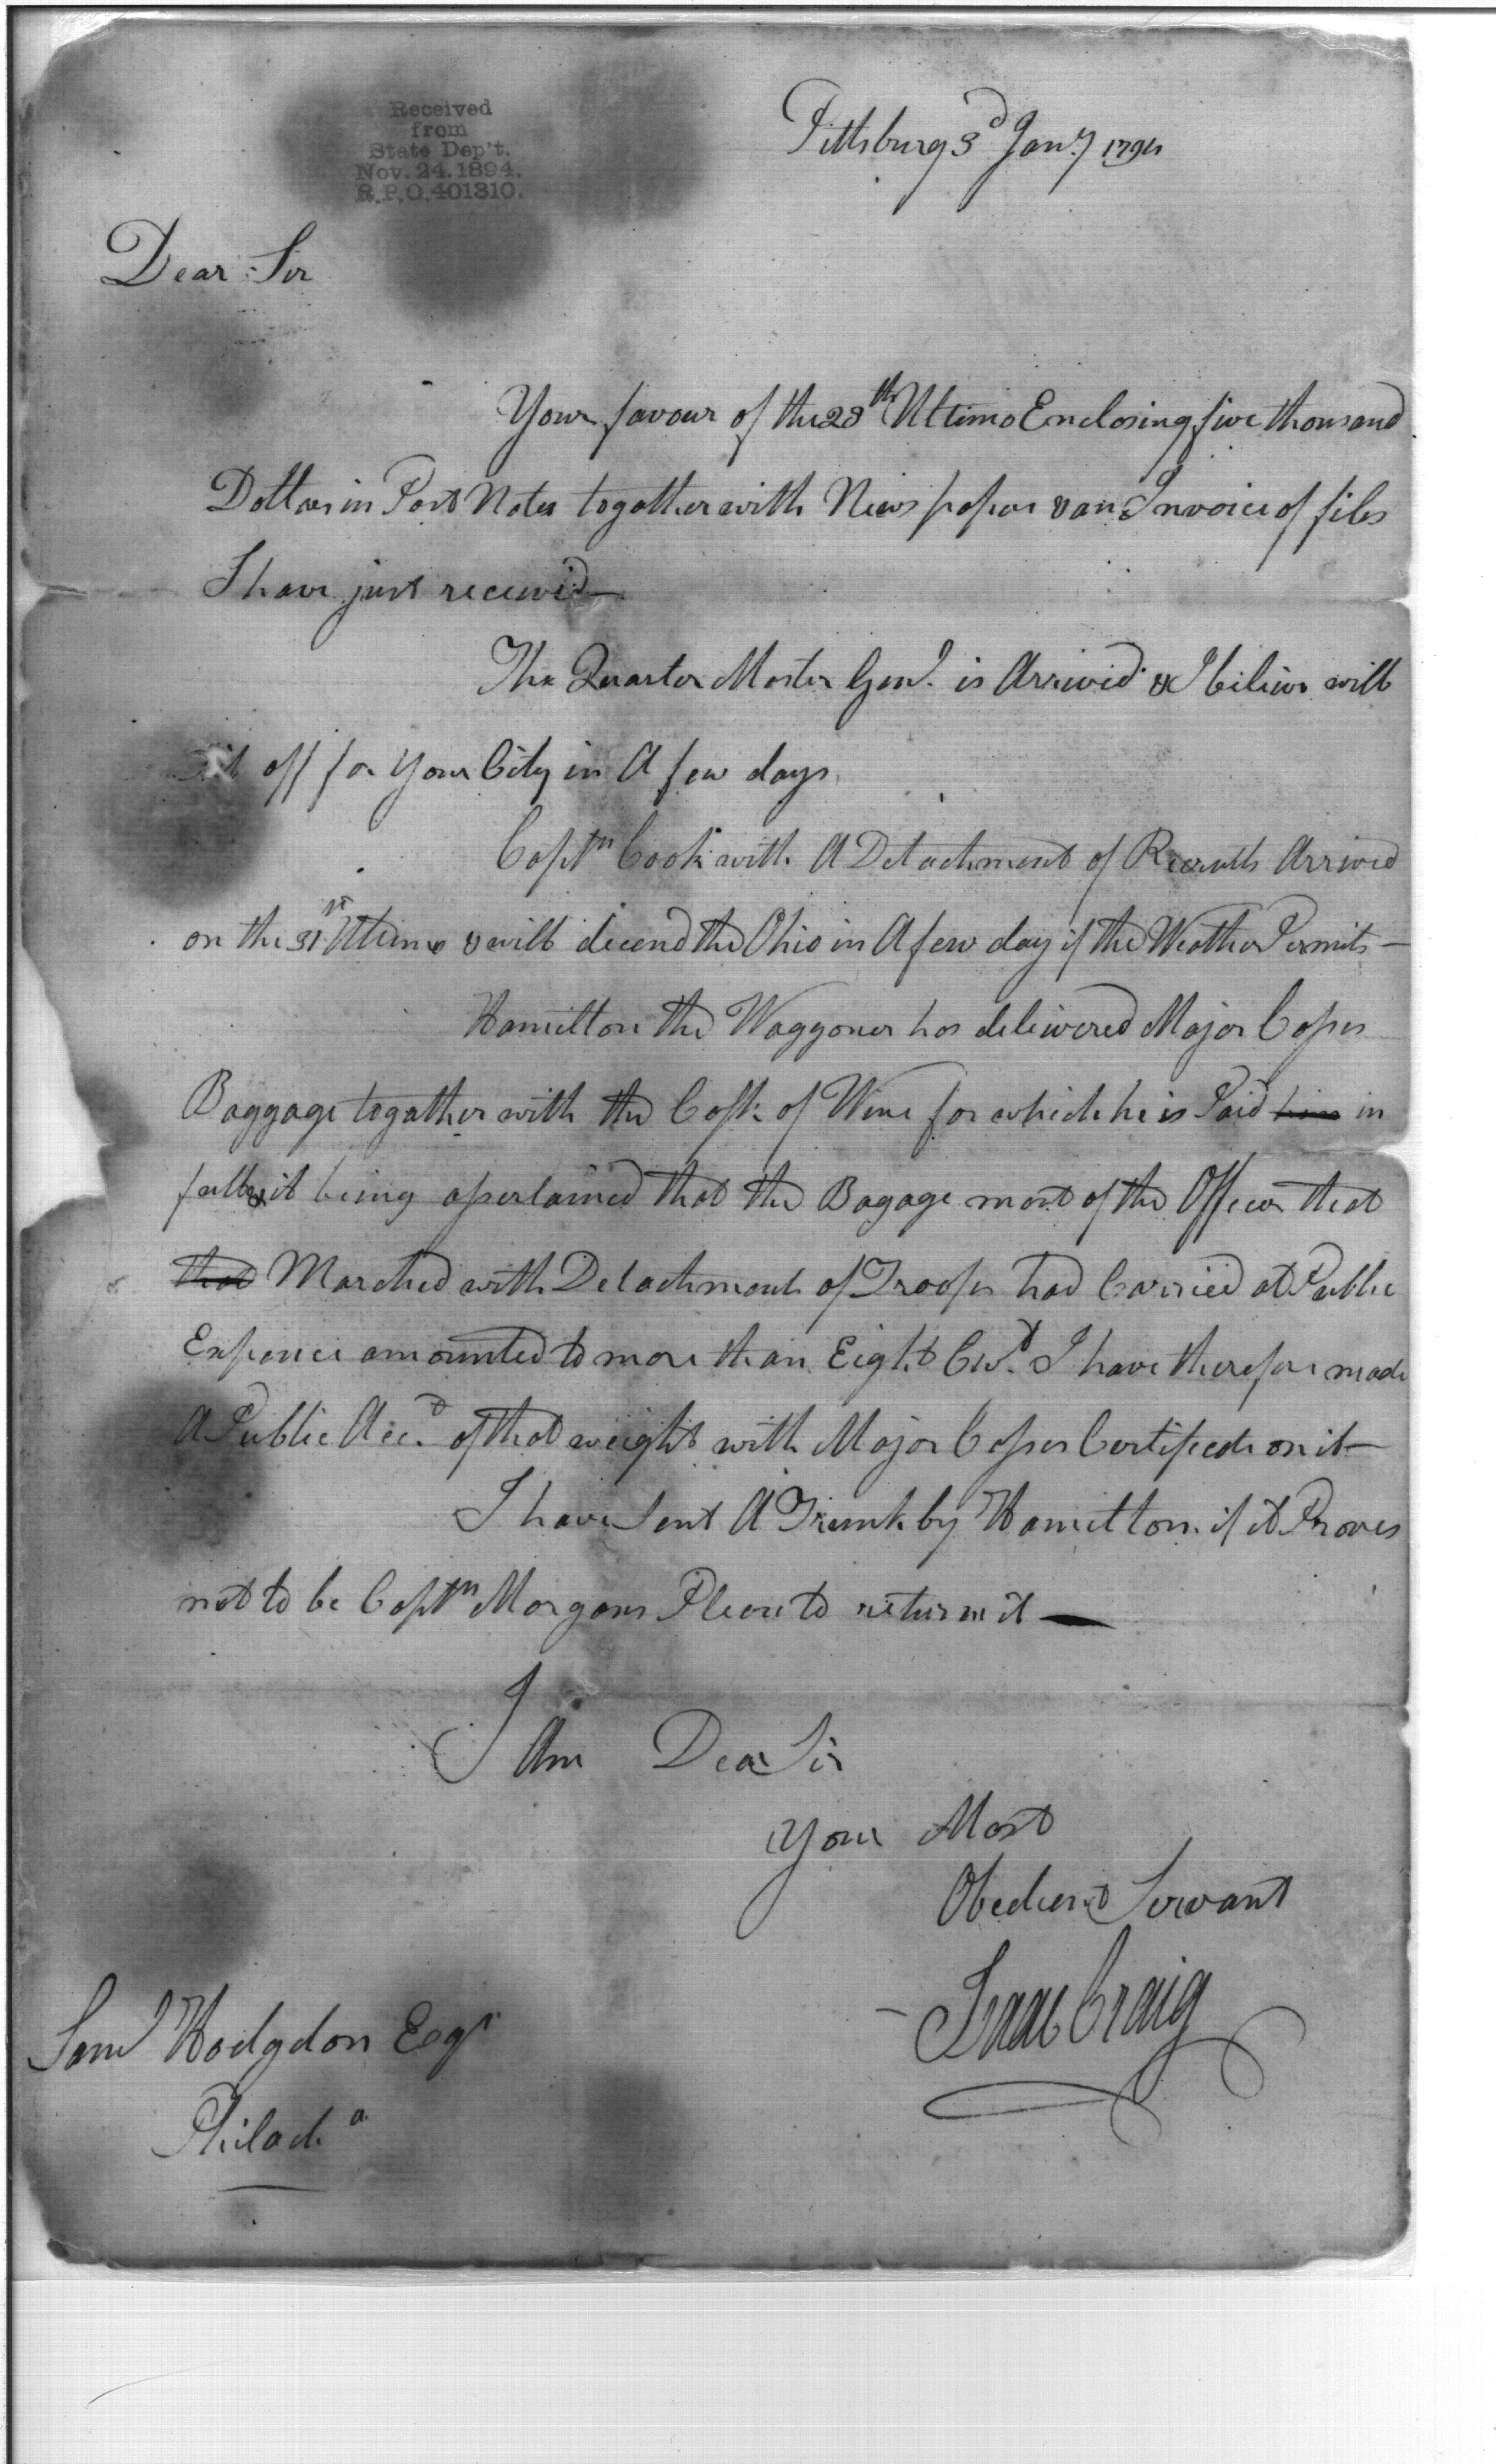 Received
from
State Dep't.
Nov. 24. 1894.
R.P.O. 401310.
Pittsburg 3d Jany 1794
Dear Sir
Your favour of the 28th Ultimo Enclosing five thousand
Dollars in Post Notes togather with News paper & an Invoice of files
I have just received—
The Quarter Master Genl. is Arrived & I belive will
off for your City in A few days
Captn Cook with A Detachment of Recruits Arrived
on the 31st Ultimo & will decend the Ohio in A few day if the Weather Permits—
Hamilton the Waggoner has delivered Major Cases
Baggage togather with the Cask of Wine for which he is Paid him in
full & it being assertained that the Bagage most of the Officers that
that Marched with Detachments of Troops had Carried at Public
Expence amounted to more than Eight Cwt. I have therefore made
A Public Acct. of that weight with Major Cases Certificate on it—
I have Sent A Trunk by Hamilton if it Proves
not to be Captn Morgans Please to return it—
I Am Dear Sir
Your Most
Obedient Servant
Isaac Craig
Saml Hodgdon Esqr
Philada